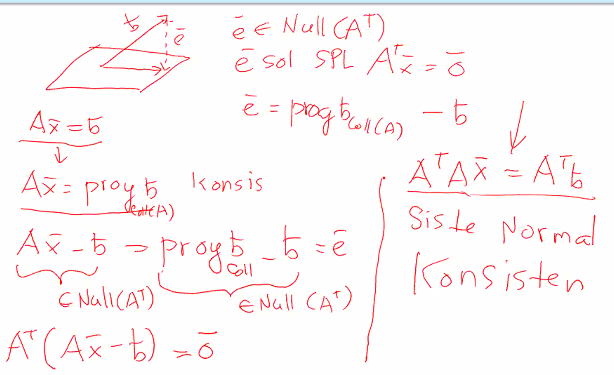 b̄ ē
ē ∈ Null(Aᵀ)
ē sol SPL Aᵀx̄ = ō
ē = proy b̄ Coll(A) − b̄
Ax̄ = b̄
↓
Ax̄ = proy b̄ Coll(A) Konsis
Ax̄ − b̄ = proy b̄ Coll − b̄ = ē
∈ Null(Aᵀ) ∈ Null(Aᵀ)
Aᵀ(Ax̄ − b̄) = ō
AᵀAx̄ = Aᵀb̄
Siste Normal
Konsisten